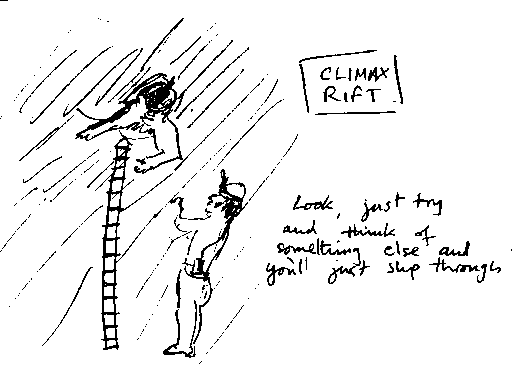 CLIMAX
RIFT
Look, just try
and think of
something else and
you'll just slip through